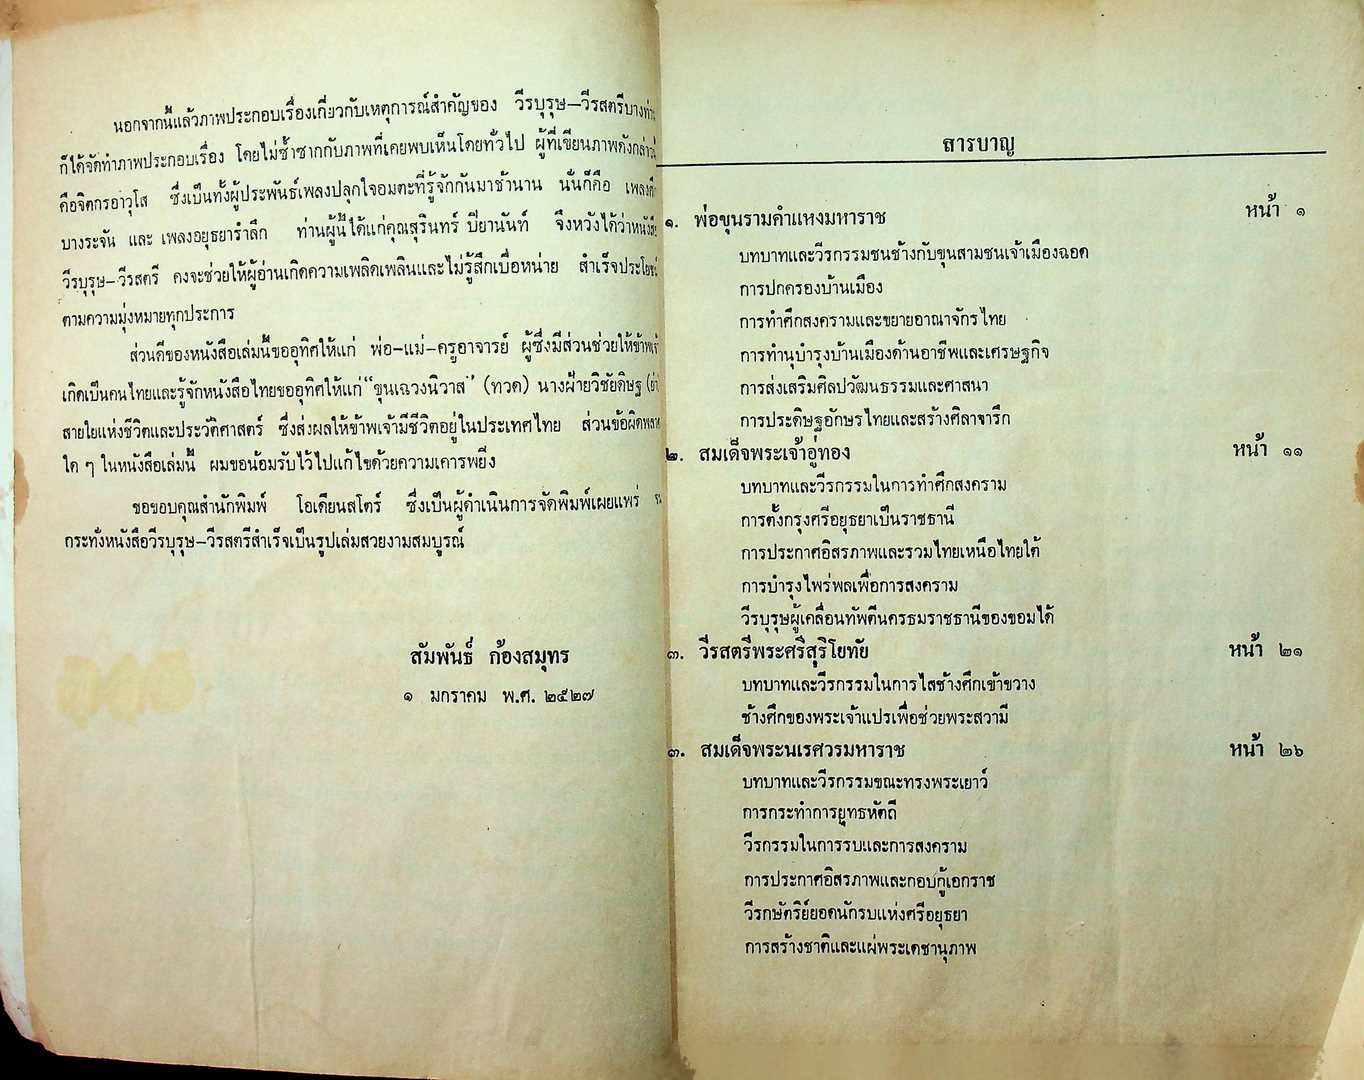 นอกจากนี้แล้วภาพประกอบเรื่องเกี่ยวกับเหตุการณ์สำคัญของ วีรบุรุษ–วีรสตรีบางท่าน
ก็ได้จัดทำภาพประกอบเรื่อง โดยไม่ซ้ำซากกับภาพที่เคยพบเห็นโดยทั่วไป ผู้ที่เขียนภาพดังกล่าวนี้
คือจิตกรอาวุโส ซึ่งเป็นทั้งผู้ประพันธ์เพลงปลุกใจอมตะที่รู้จักกันมาช้านาน นั่นก็คือ เพลง
บางระจัน และ เพลงอยุธยารำลึก ท่านผู้นี้ได้แก่คุณสุรินทร์ ปิยานันท์ จึงหวังได้ว่าหนังสือ
วีรบุรุษ–วีรสตรี คงจะช่วยให้ผู้อ่านเกิดความเพลิดเพลินและไม่รู้สึกเบื่อหน่าย สำเร็จประโยชน์
ตามความมุ่งหมายทุกประการ
ส่วนดีของหนังสือเล่มนี้ขออุทิศให้แก่ พ่อ–แม่–ครูอาจารย์ ผู้ซึ่งมีส่วนช่วยให้ข้าพเจ้า
เกิดเป็นคนไทยและรู้จักหนังสือไทยขออุทิศให้แก่ “ขุนเฉวงนิวาส” (ทวด) นางฝ้ายวิชัยดิษฐ (ย่า)
สายใยแห่งชีวิตและประวัติศาสตร์ ซึ่งส่งผลให้ข้าพเจ้ามีชีวิตอยู่ในประเทศไทย ส่วนข้อผิดพลาด
ใด ๆ ในหนังสือเล่มนี้ ผมขอน้อมรับไว้ไปแก้ไขด้วยความเคารพยิ่ง
ขอขอบคุณสำนักพิมพ์ โอเดียนสโตร์ ซึ่งเป็นผู้ดำเนินการจัดพิมพ์เผยแพร่ จน
กระทั่งหนังสือวีรบุรุษ–วีรสตรีสำเร็จเป็นรูปเล่มสวยงามสมบูรณ์
สัมพันธ์ ก้องสมุทร
๑ มกราคม พ.ศ. ๒๕๒๗
สารบาญ
๑. พ่อขุนรามคำแหงมหาราช หน้า ๑
บทบาทและวีรกรรมชนช้างกับขุนสามชนเจ้าเมืองฉอด
การปกครองบ้านเมือง
การทำศึกสงครามและขยายอาณาจักรไทย
การทำนุบำรุงบ้านเมืองด้านอาชีพและเศรษฐกิจ
การส่งเสริมศิลปวัฒนธรรมและศาสนา
การประดิษฐอักษรไทยและสร้างศิลาจารึก
๒. สมเด็จพระเจ้าอู่ทอง หน้า ๑๑
บทบาทและวีรกรรมในการทำศึกสงคราม
การตั้งกรุงศรีอยุธยาเป็นราชธานี
การประกาศอิสรภาพและรวมไทยเหนือไทยใต้
การบำรุงไพร่พลเพื่อการสงคราม
วีรบุรุษผู้เคลื่อนทัพตีนครธมราชธานีของขอมได้
๓. วีรสตรีพระศรีสุริโยทัย หน้า ๒๑
บทบาทและวีรกรรมในการไสช้างศึกเข้าขวาง
ช้างศึกของพระเจ้าแปรเพื่อช่วยพระสวามี
๓. สมเด็จพระนเรศวรมหาราช หน้า ๒๖
บทบาทและวีรกรรมขณะทรงพระเยาว์
การกระทำการยุทธหัตถี
วีรกรรมในการรบและการสงคราม
การประกาศอิสรภาพและกอบกู้เอกราช
วีรกษัตริย์ยอดนักรบแห่งศรีอยุธยา
การสร้างชาติและแผ่พระเดชานุภาพ